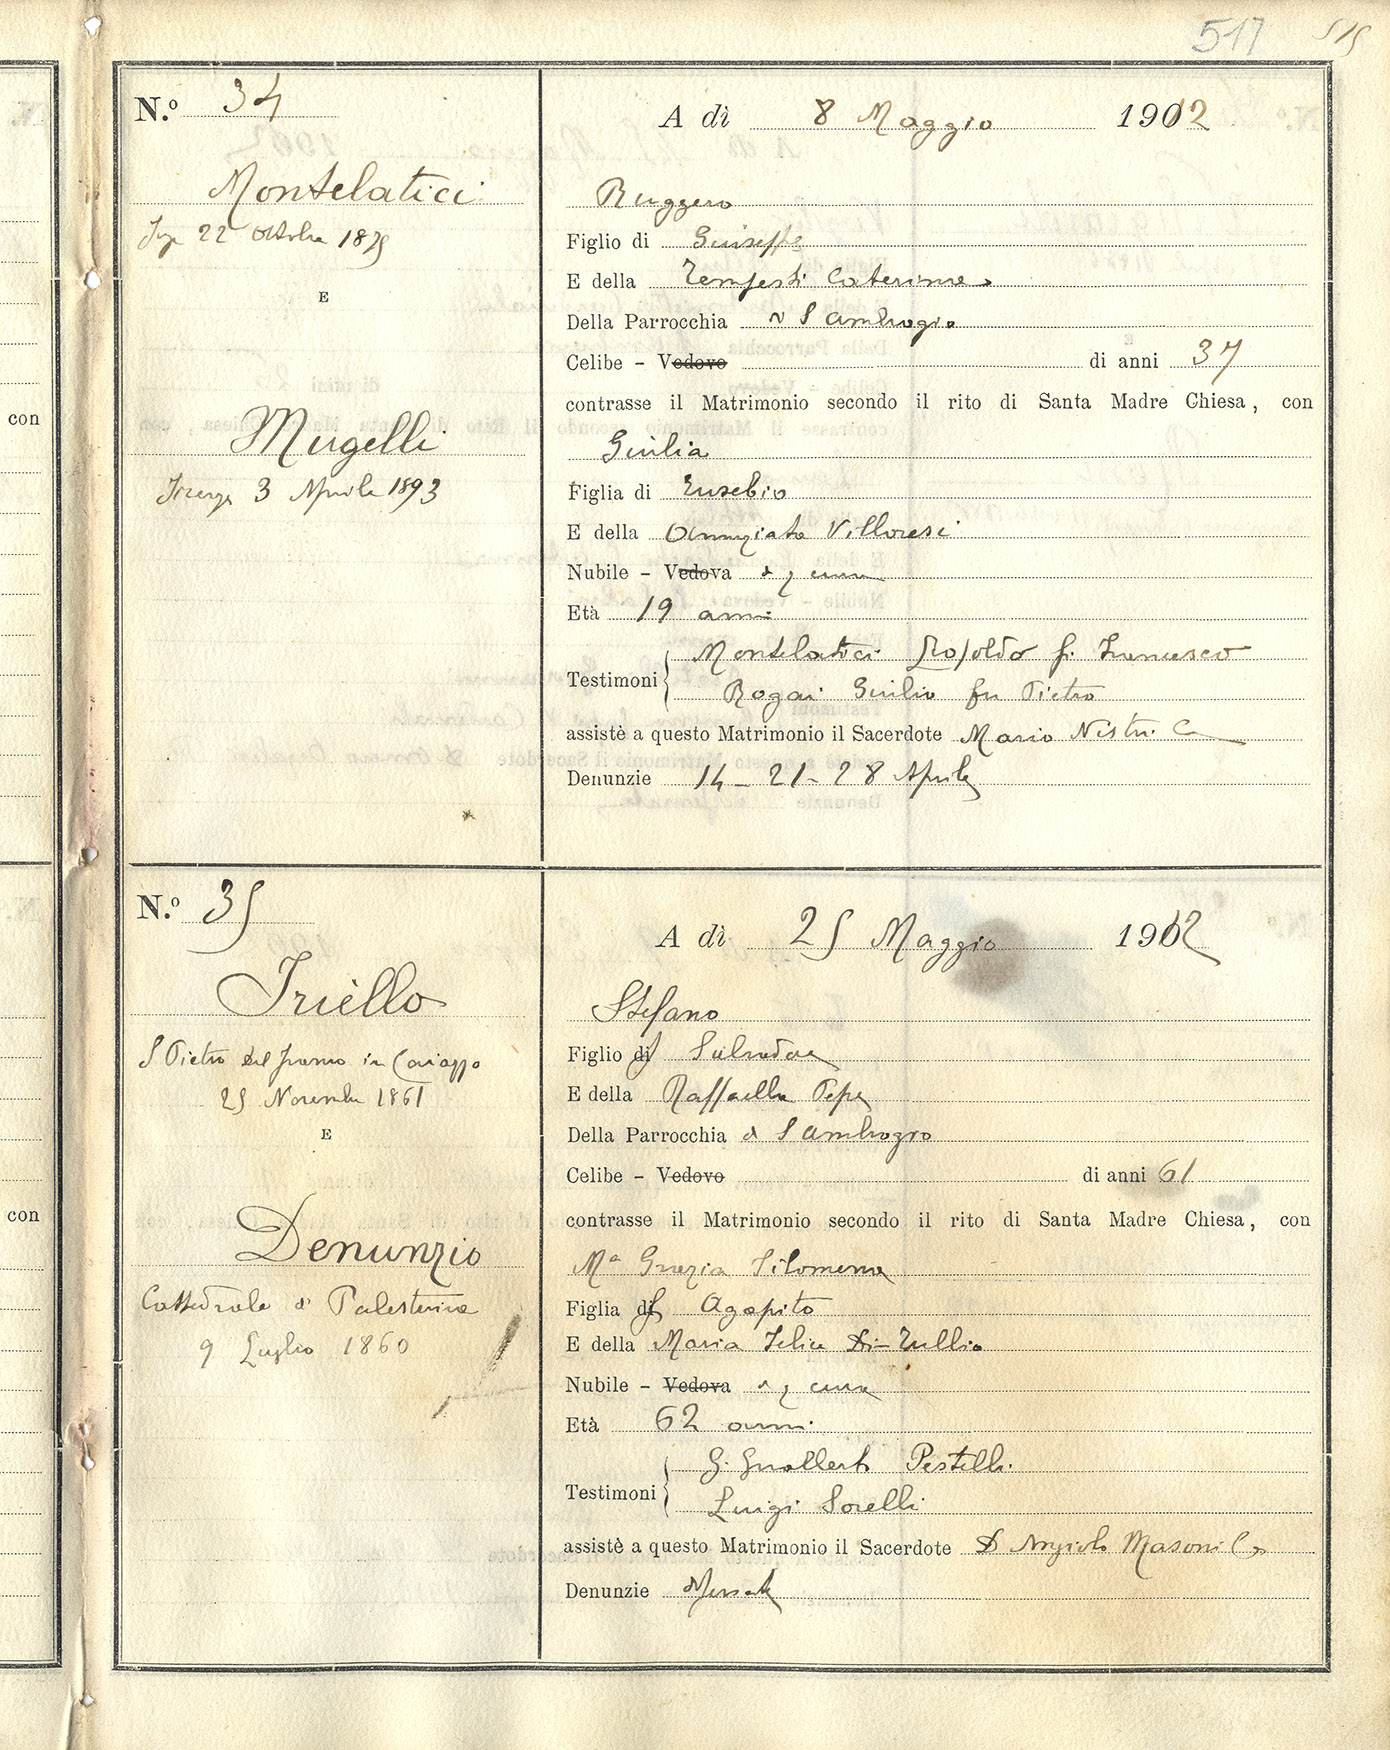 517 515
N.º 34
Montelatici
22 Ottobre 1875
E
Mugelli
Firenze 3 Aprile 1893
A dì 8 Maggio 1912
Ruggero
Figlio di Giuseppe
E della Tempesti Caterina
Della Parrocchia S Ambrogio
Celibe – Vedovo di anni 37
contrasse il Matrimonio secondo il rito di Santa Madre Chiesa, con
Giulia
Figlia di Eusebio
E della Annunziata Villoresi
Nubile – Vedova di q cura
Età 19 anni
Testimoni Montelatici Leopoldo fu Francesco
Rogai Giulio fu Pietro
assistè a questo Matrimonio il Sacerdote Mario Nistri C
Denunzie 14 – 21 – 28 Aprile
N.º 35
Iriello
S Pietro del in
25 Novembre 1861
E
Denunzio
Cattedrale di Palestrina
9 Luglio 1860
A dì 25 Maggio 1912
Stefano
Figlio di Salvadore
E della Raffaella Pepe
Della Parrocchia di S Ambrogio
Celibe – Vedovo di anni 61
contrasse il Matrimonio secondo il rito di Santa Madre Chiesa, con
Mª Grazia Filomena
Figlia di Agapito
E della Maria Felice Di-Tullio
Nubile – Vedova di q cura
Età 62 anni
Testimoni G. Gualberto Pestelli
Luigi Sorelli
assistè a questo Matrimonio il Sacerdote D Angiolo Masoni C
Denunzie
con
con